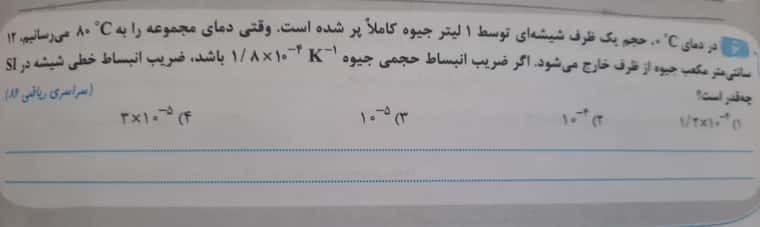 ۶ در دمای ۰ °C، حجم یک ظرف شیشه‌ای توسط ۱ لیتر جیوه کاملاً پر شده است. وقتی دمای مجموعه را به ۸۰ °C می‌رسانیم، ۱۲
سانتی‌متر مکعب جیوه از ظرف خارج می‌شود. اگر ضریب انبساط حجمی جیوه ۱/۸×۱۰⁻⁴ K⁻¹ باشد، ضریب انبساط خطی شیشه در SI
چه‌قدر است؟ (سراسری ریاضی ۸۶)
۱) ۱/۲×۱۰⁻⁴ ۲) ۱۰⁻⁴ ۳) ۱۰⁻⁵ ۴) ۳×۱۰⁻⁵